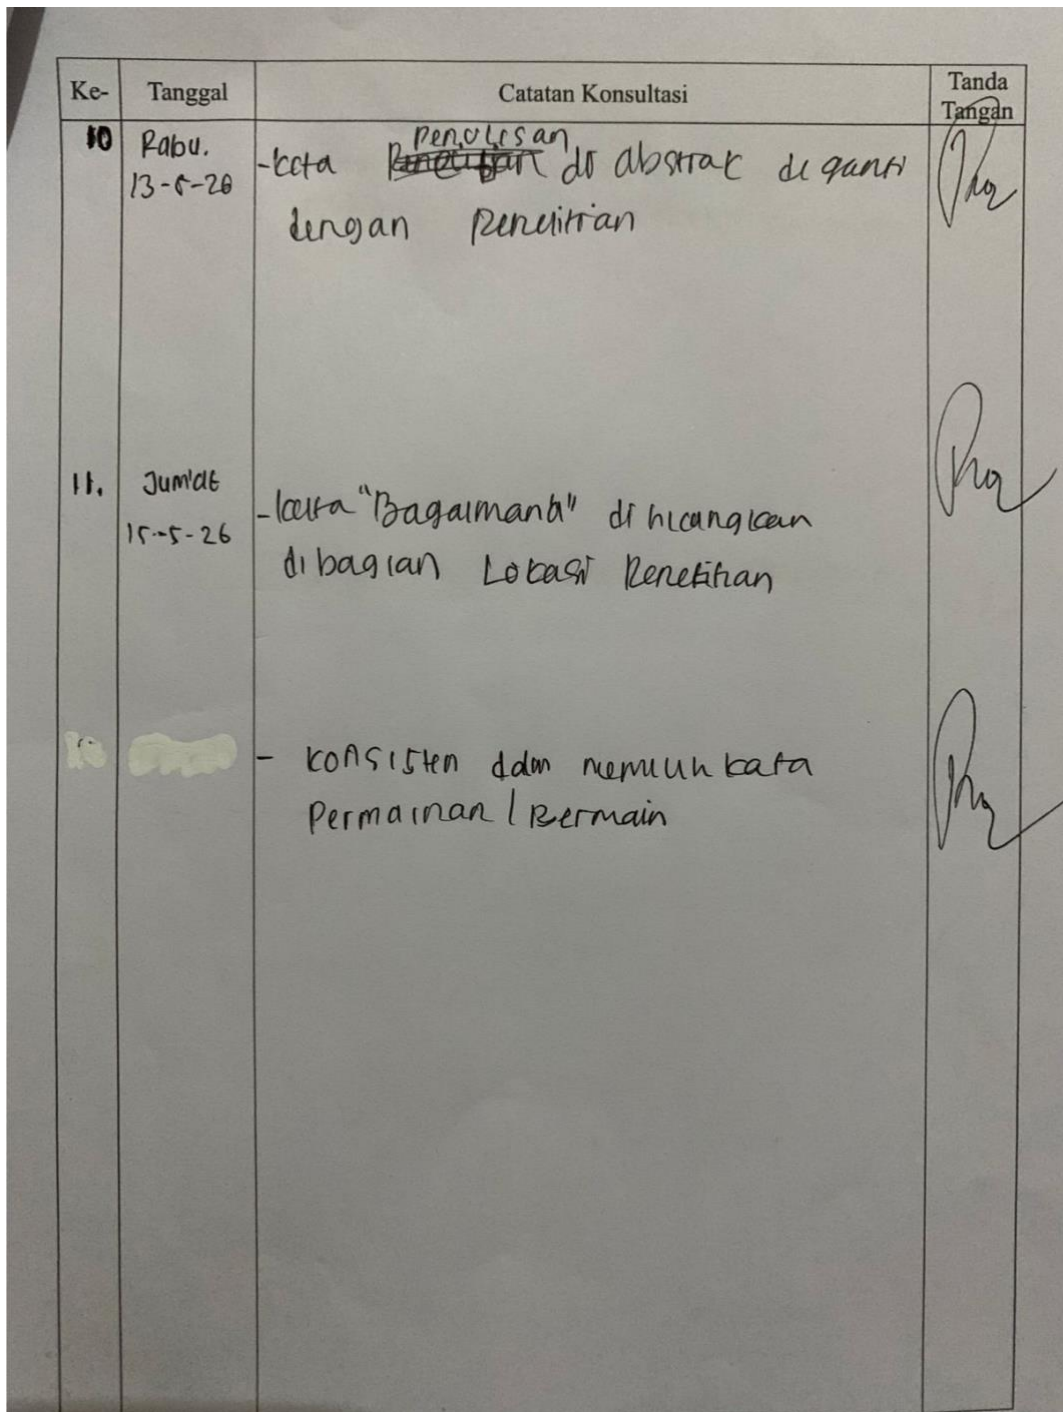 Ke- Tanggal Catatan Konsultasi Tanda Tangan
10 Rabu. 13-5-26
penulisan
-kata di abstrak di ganti
dengan Penelitian
11. Jum'at 15-5-26
-kata "Bagaimana" di hilangkan
dibagian Lokasi Penelitian
- Konsisten dalam memilih kata
Permainan / Bermain